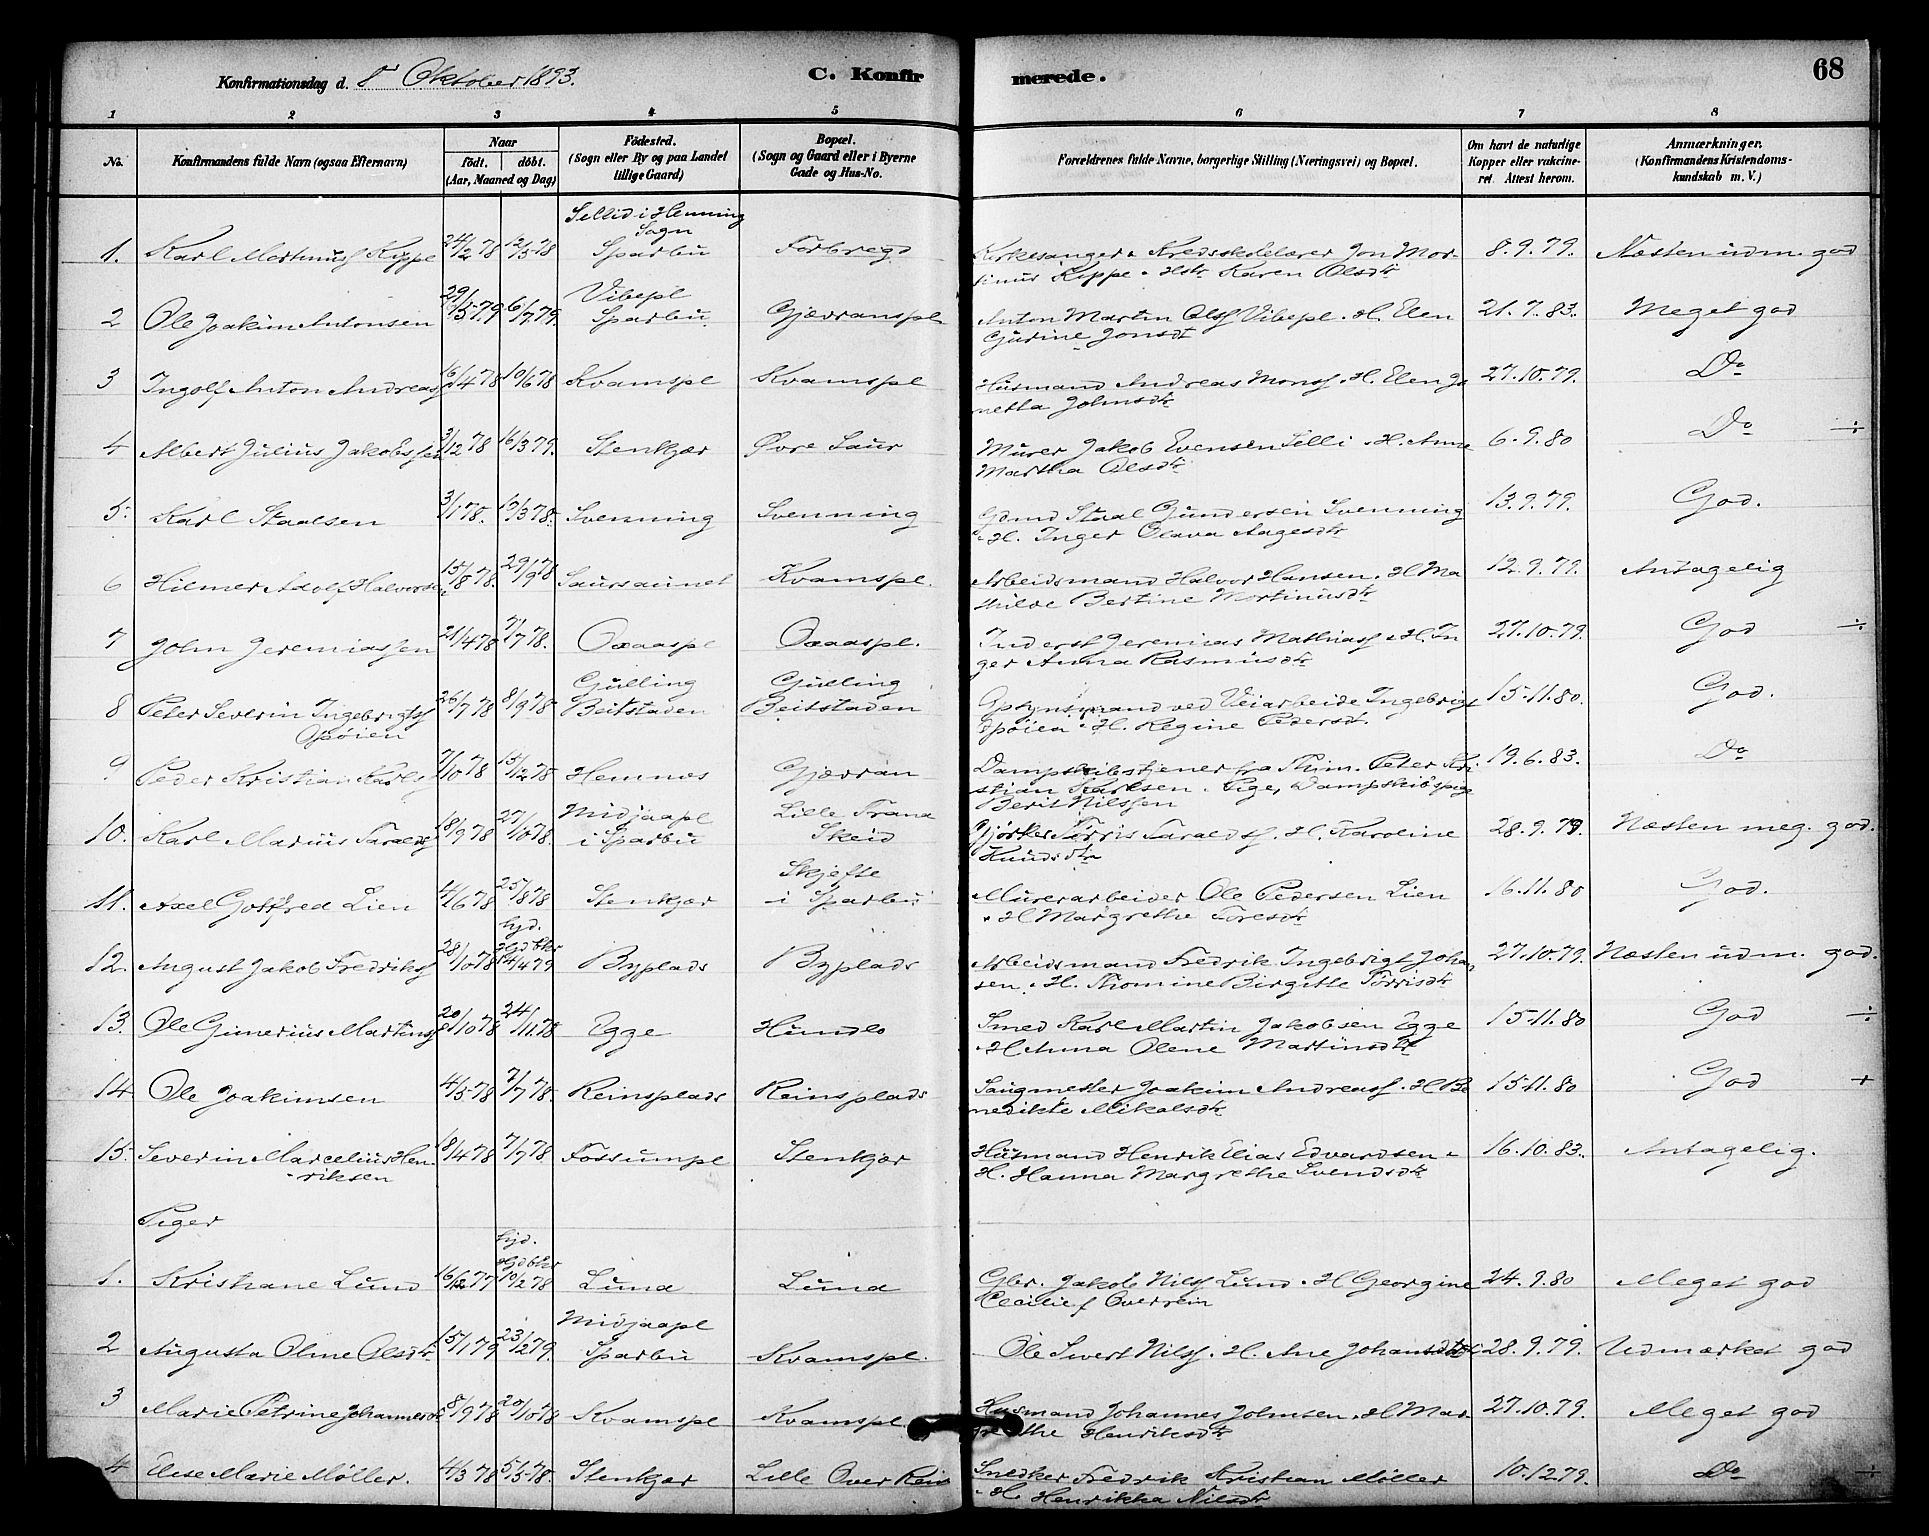 Konfirmationsdag d. 8 Oktober 1893.
C. Konfirmerede.
68
1 2 3 4 5 6 7 8
No.
Konfirmandens fulde Navn (ogsaa Efternavn)
Naar
født. døbt.
(Aar, Maaned og Dag)
Fødested.
(Sogn eller By og paa Landet
tillige Gaard)
Bopæl.
(Sogn og Gaard eller i Byerne
Gade og Hus-No.
Forældrenes fulde Navne, borgerlige Stilling (Næringsvei) og Bopæl.
Om havt de naturlige
Kopper eller vakcine-
ret. Attest herom.
Anmærkninger.
(Konfirmandens Kristendoms-
kundskab m. V.)
i Henning
Sogn
1. Karl Martinuss Kippe 24/2 78 12/5 78 Sparbu Forbregd Kirkesanger & Kredsskolelærer Jon Mor- 8.9.79. Næsten udm. god
tinus Kippe & Hstr Karen Olsdtr
Vibepl
2 Ole Joakim Antonsen 29/5 79 6/7 79. Sparbu Gjævranspl Anton Martin Olss Vibepl. H. Elen 21.7.83. Meget god
Gurine Jonsdt
3 Ingolf Anton Andreass 16/4 78 10/6 78 Kvamspl Kvamspl Husmand Andreas Monss. H. Elen Ja 27.10.79. Do
netta Johnsdtr
4 Albert Julius Jakobssen 3/12 78 16/3 79. Stenkjær Øvre Saur Murer Jakob Evensen Selli & H. Anne 6.9.80 Do ÷
Martha Olsdtr
5. Karl Staalsen 3/1 78. 10/3 78. Svenning Svenning Gdmd Staal Gundersen Svenning 13.9.79. God.
& H. Inger Olava Aagesdtr
6 Hilmer Adolf Halvorsen 15/8 78. 29/9 78 Saursaunet Kvamspl. Arbeidsmand Halvor Hansen & H Ma 12.9.79. Antagelig
thilde Bertine Mortinusdtr
7 John Jeremiassen 21/4 78 7/7 78. Oxaaspl Oxaaspl. Inderst Jeremias Mathiass & H. In 27.10.79. God ÷
ger Anna Rasmusdtr
Gulling Gulling
8 Peter Severin Ingebrigts 26/7 78 8/9 78 Beitstaden Beitstaden Opsynsmand ved Veiarbeide Ingebrigt 15.11.80. God.
Opøien
Opøien & H. Regine Pedersdt.
9 Peder Kristian Karls 7/10 78 15/12 78 Hemnæs Gjævran Dampskibstjener fra Thjm. Peter Kri 19.6.83. Do
stian Karlsen & Pige, Dampskibspige
Berit Nilssen
Midjaapl Lille Trana
10. Karl Marius Taralds 18/9 78 27/10 78. i Sparbu Skeid Gjørtler Tørris Taraldss. H. Karoline 28.9.79 Næsten meg. god.
Knudsdtr
Skjefte
11. Axel Gottfred Lien 4/6 78 25/8 78 Stenkjær i Sparbu Murerarbeider Ole Pedersen Lien 16.11.80 God.
& H Margrethe Toresdtr
hjd.
12. August Jakob Fredriks 28/10 78 14/4 79 Byplads Byplads Arbeidsmand Fredrik Ingebrigt Johan 27.10.79. Næsten udm. god.
sen. H. Thomine Birgitte Tørrisdtr
13. Ole Gunerius Martins 20/10 78 24/11 78 Egge Humlo Smed Karl Martin Jakobsen Egge 15.11.80 God ÷
H Anna Olene Martinsdtr
14 Ole Joakimsen 4/5 78 7/7 78. Reinsplads Reinsplads Saugmester Joakim Andreass. H Be 15.11.80 God +
nedikte Mikalsdtr
15. Severin Marcelius Hen 18/4 78 7/7 78 Fossumpl Stenkjær Husmand Henrik Elias Edvardsen & 16.10.83. Antagelig.
-riksen
H. Hanna Margrethe Svendsdtr
Piger
hjd.
1. Kristiane Lund 16/12 77 10/2 78 Lund Lund Gbr. Jakob Nilss Lund & H Georgine 24.9.80 Meget god
Cecilie f Overrein
Midjaapl
2 Augusta Oline Olsdtr 15/1 79 23/2 79. Sparbu Kvamspl. Ole Sivert Nilss. H. Ane Johansdtr 28.9.79. Udmærket god
3 Marie Petrine Johannesdtr 8/9 78 20/10 78 Kvamspl Kvamspl Husmand Johannes Johnsen & H Mar 27.10.79. Meget god
grethe Henriksdtr
4 Elise Marie Møller. 4/3 78 5/5 78. Stenkjær Lille Over Rein Snedker Fredrik Kristian Møller 10.12.79. Do ÷
& H. Henrikka Nilsdtr